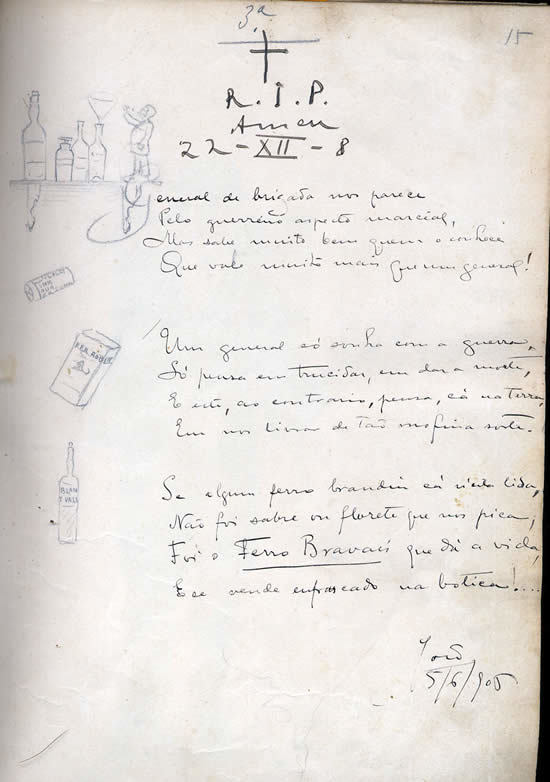 3.ª
15
R. I. P.
Amen
22-XII-8
General de brigada nos parece
Pelo guerreiro aspecto marcial,
Mas sabe muito bem quem o conhece
Que vale muito mais que um general!
Um general só sonha com a guerra,
Só pensa em trucidar, em dar a morte,
E este, ao contrario, pensa, cá na terra,
Em nos livrar de tão mofina sorte.
Se algum ferro brandiu cá n'esta lida,
Não foi sabre ou florete que nos pica,
Foi o Ferro Bravais que dá a vida,
E se vende enfrascado na botica!....
BLAN
VALI
João
5/6/905